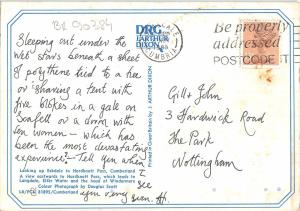 BR 990384
Sleeping out under the
wet stars beneath a sheet
of polythene tied to a tree
or sharing a tent with
five blokes in a gale on
Scafell or a dorm with
ten women – which has
been the most devastating
experience? Tell you when
I see
you Being seen. H.
Looking up Eskdale to Hardknott Pass, Cumberland
A view eastwards to Hardknott Pass, which leads to
Langdale, Elter Water and the head of Windermere
Colour Photograph by Douglas Scott
LA/P 81895/Cumberland
DRG
J. ARTHUR
DIXON
Printed in Great Britain by J. ARTHUR DIXON
CUMBRIA
Be properly
addressed
POSTCODE IT
Gill + John
3 Hardwick Road
The Park
Nottingham